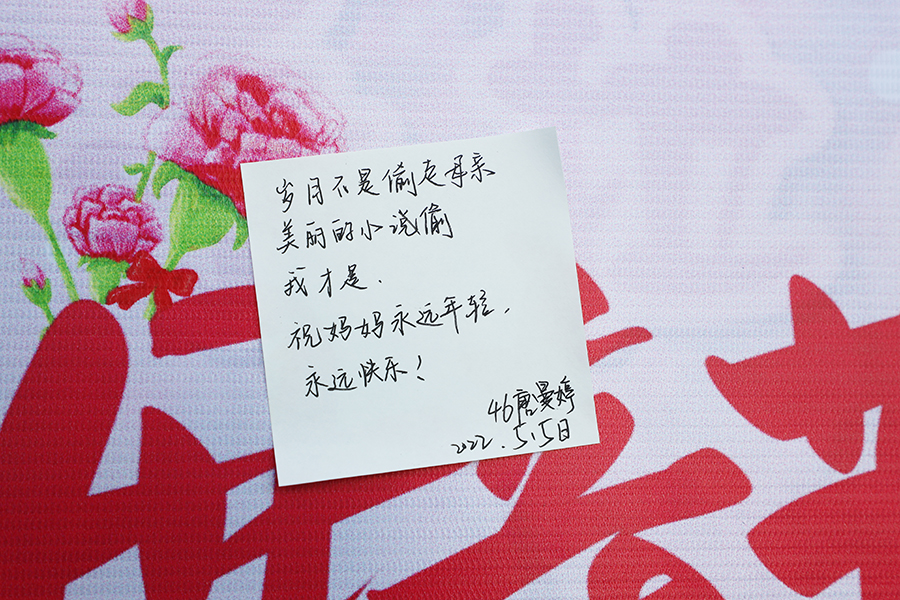 岁月不是偷走母亲
美丽的小说偷
我才是.
祝妈妈永远年轻,
永远快乐!
46唐曼婷
2022.5.5日